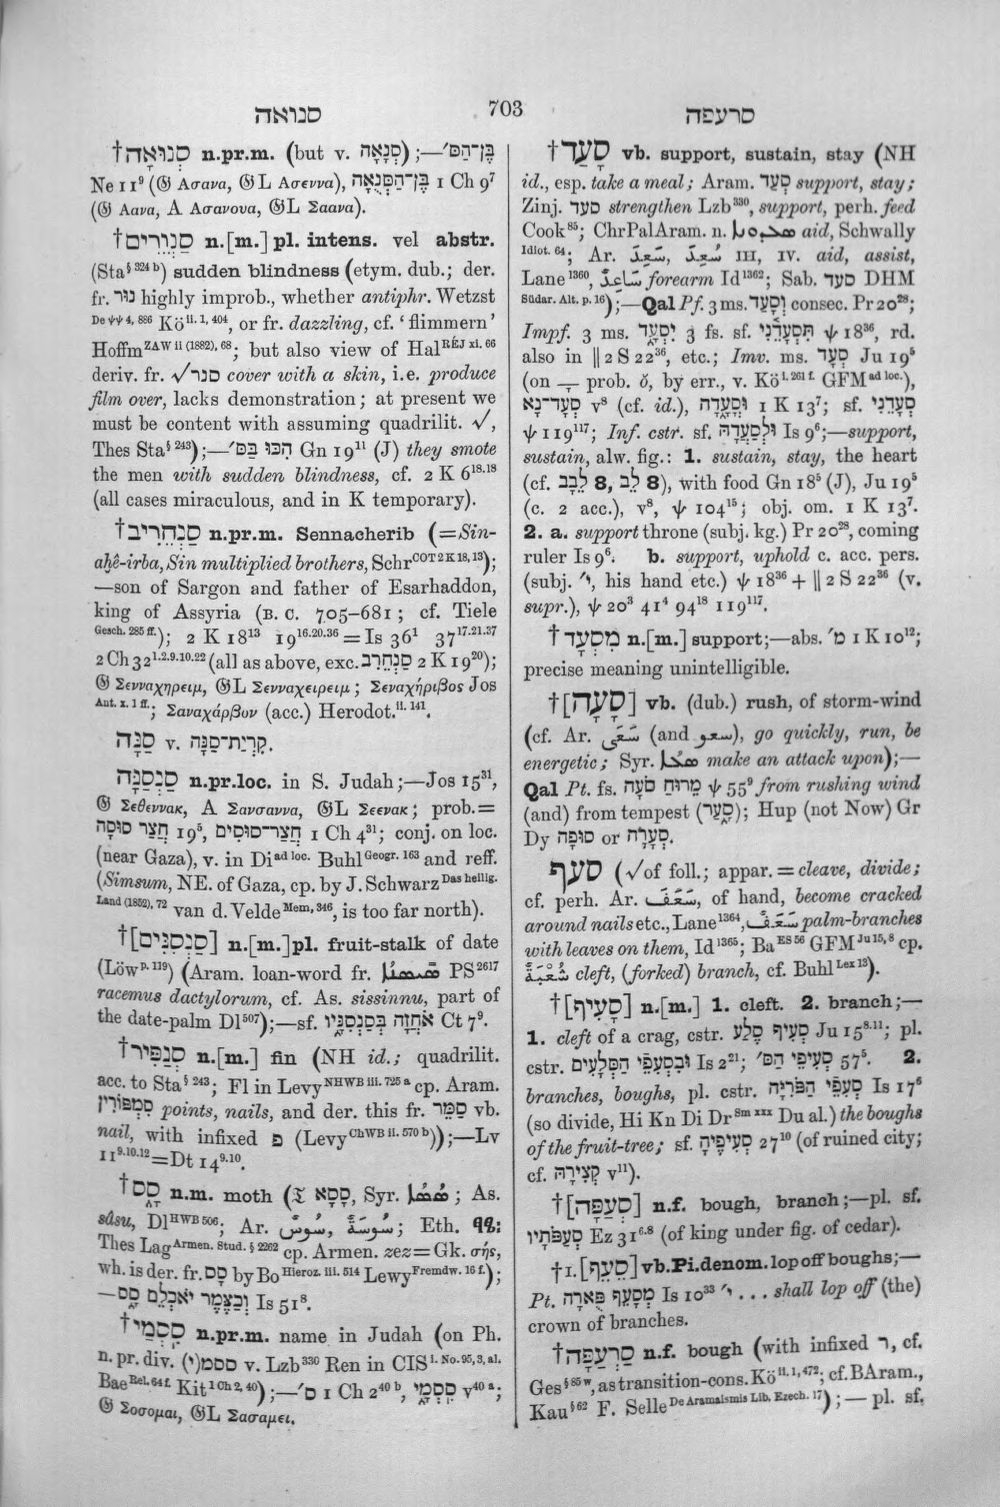 סנואה
703
סרעפה
†סְנוּאָה n.pr.m. (but v. סְנָאָה);—בֶּן־הַסּ׳
Ne 11⁹ (𝔊 Ασανα, 𝔊L Ασεννα), בֶּן־הַסְּנֻאָה 1 Ch 9⁷
(𝔊 Αανα, A Ασανουα, 𝔊L Σαανα).
†סַנְוֵרִים n.[m.] pl. intens. vel abstr.
(Sta§ 324 b) sudden blindness (etym. dub.; der.
fr. נור highly improb., whether antiphr. Wetzst
De ψψ 4, 886 Kö ii. 1, 404, or fr. dazzling, cf. ‘flimmern’
Hoffm ZAW ii (1882), 68; but also view of Hal RÉJ xi. 66
deriv. fr. √סנר cover with a skin, i.e. produce
film over, lacks demonstration; at present we
must be content with assuming quadrilit. √,
Thes Sta§ 243);—הִכּוּ בַּסּ׳ Gn 19¹¹ (J) they smote
the men with sudden blindness, cf. 2 K 6¹⁸·¹⁸
(all cases miraculous, and in K temporary).
†סַנְחֵרִיב n.pr.m. Sennacherib (=Sin-
aḫê-irba, Sin multiplied brothers, Schr COT 2 K 18, 13);
—son of Sargon and father of Esarhaddon,
king of Assyria (B. C. 705–681; cf. Tiele
Gesch. 285 ff.); 2 K 18¹³ 19¹⁶·²⁰·³⁶ = Is 36¹ 37¹⁷·²¹·³⁷
2 Ch 32¹·²·⁹·¹⁰·²² (all as above, exc. סַנְחֵרִב 2 K 19²⁰);
𝔊 Σενναχηρειμ, 𝔊L Σενναχειρειμ; Σεναχήριβος Jos
Ant. x. 1 ff.; Σαναχάρβον (acc.) Herodot. ii. 141.
סַנָּה v. קִרְיַת־סַנָּה.
סַנְסַנָּה n.pr.loc. in S. Judah;—Jos 15³¹,
𝔊 Σεθεννακ, A Σανσαννα, 𝔊L Σεενακ; prob.=
חֲצַר סוּסָה 19⁵, חֲצַר־סוּסִים 1 Ch 4³¹; conj. on loc.
(near Gaza), v. in Di ad loc. Buhl Geogr. 163 and reff.
(Simsum, NE. of Gaza, cp. by J. Schwarz Das heilig.
Land (1852), 72 van d. Velde Mem, 346, is too far north).
†[סַנְסִנִּים] n.[m.]pl. fruit-stalk of date
(Löw p. 119) (Aram. loan-word fr. PS 2617
racemus dactylorum, cf. As. sissinnu, part of
the date-palm Dl 507);—sf. אֹחֲזָה בְּסַנְסִנָּיו Ct 7⁹.
†סְנַפִּיר n.[m.] fin (NH id.; quadrilit.
acc. to Sta§ 243; Fl in Levy NHWB iii. 725 a cp. Aram.
points, nails, and der. this fr. סְמַר vb.
nail, with infixed פ (Levy ChWB ii. 570 b));—Lv
11⁹·¹⁰·¹² = Dt 14⁹·¹⁰.
†סָס n.m. moth (𝔗 סָסָא, Syr. ܣܳܣܳܐ; As.
sâsu, Dl HWB 506; Ar. سُوسٌ, سُوسَةٌ; Eth. ቊቊ:
Thes Lag Armen. Stud. § 2262 cp. Armen. zez=Gk. σής,
wh. is der. fr. סָס by Bo Hieroz. iii. 514 Lewy Fremdw. 16 f.);
—וְכַצֶּמֶר יֹאכְלֵם סָס Is 51⁸.
†סִסְמַי n.pr.m. name in Judah (on Ph.
n. pr. div. ססמ(י) v. Lzb 330 Ren in CIS 1. No. 95, 3, al.
Bae Rel. 64 f. Kit 1 Ch 2, 40);—ס׳ 1 Ch 2⁴⁰ ᵇ, סִסְמָי v⁴⁰ ᵃ;
𝔊 Σοσομαι, 𝔊L Σασαμει.
†סָעַד vb. support, sustain, stay (NH
id., esp. take a meal; Aram. סְעַד support, stay;
Zinj. סעד strengthen Lzb 330, support, perh. feed
Cook 85; ChrPalAram. n. aid, Schwally
Idiot. 64; Ar. سَعِدَ, سَعَدَ III, IV. aid, assist,
Lane 1360, سَاعِدٌ forearm Id 1362; Sab. סעד DHM
Südar. Alt. p. 16);—Qal Pf. 3 ms. וְסָעַד consec. Pr 20²⁸;
Impf. 3 ms. יִסְעָד 3 fs. sf. תִּסְעָדֵנִי ψ 18³⁶, rd.
also in ‖ 2 S 22³⁶, etc.; Imv. ms. סְעָד Ju 19⁵
(on prob. ŏ, by err., v. Kö 1. 261 f. GFM ad loc.),
סְעָד־נָא v⁸ (cf. id.), וּסְעָדָה 1 K 13⁷; sf. סְעָדֵנִי
ψ 119¹¹⁷; Inf. cstr. sf. וּלְסַעֲדָהּ Is 9⁶;—support,
sustain, alw. fig.: 1. sustain, stay, the heart
(cf. לֵבָב 8, לֵב 8), with food Gn 18⁵ (J), Ju 19⁵
(c. 2 acc.), v⁸, ψ 104¹⁵; obj. om. 1 K 13⁷.
2. a. support throne (subj. kg.) Pr 20²⁸, coming
ruler Is 9⁶. b. support, uphold c. acc. pers.
(subj. י׳, his hand etc.) ψ 18³⁶ + ‖ 2 S 22³⁶ (v.
supr.), ψ 20³ 41⁴ 94¹⁸ 119¹¹⁷.
†מִסְעָד n.[m.] support;—abs. מ׳ 1 K 10¹²;
precise meaning unintelligible.
†[סָעָה] vb. (dub.) rush, of storm-wind
(cf. Ar. سَعَى (and سعو), go quickly, run, be
energetic; Syr. ܣܥܐ make an attack upon);—
Qal Pt. fs. מֵרוּחַ סֹעָה ψ 55⁹ from rushing wind
(and) from tempest (סָעַר); Hup (not Now) Gr
Dy סוּפָה or סְעָרָה.
סעף (√of foll.; appar. = cleave, divide;
cf. perh. Ar. سَعَفَ, of hand, become cracked
around nails etc., Lane 1364, سَعَفٌ palm-branches
with leaves on them, Id 1365; Ba ES 56 GFM Ju 15, 8 cp.
شُعْبَةٌ cleft, (forked) branch, cf. Buhl Lex 13).
†[סָעִיף] n.[m.] 1. cleft. 2. branch;—
1. cleft of a crag, cstr. סְעִיף סֶלַע Ju 15⁸·¹¹; pl.
cstr. וּבִסְעִפֵי הַסְּלָעִים Is 2²¹; סְעִיפֵי הַסּ׳ 57⁵. 2.
branches, boughs, pl. cstr. סְעִפֵי הַפֹּרִיָּה Is 17⁶
(so divide, Hi Kn Di Dr Sm xxx Du al.) the boughs
of the fruit-tree; sf. סְעִיפֶיהָ 27¹⁰ (of ruined city;
cf. קְצִירָהּ v¹¹).
†[סְעַפָּה] n.f. bough, branch;—pl. sf.
סְעַפֹּתָיו Ez 31⁶·⁸ (of king under fig. of cedar).
†I. [סֵעֵף] vb. Pi. denom. lop off boughs;—
Pt. מְסָעֵף פֻּארָה Is 10³³ י׳ . . . shall lop off (the)
crown of branches.
†סַרְעַפָּה n.f. bough (with infixed ר, cf.
Ges § 85 w, as transition-cons. Kö ii. 1, 472; cf. BAram.,
Kau § 62 F. Selle De Aramaismis Lib. Ezech. 17);—pl. sf.